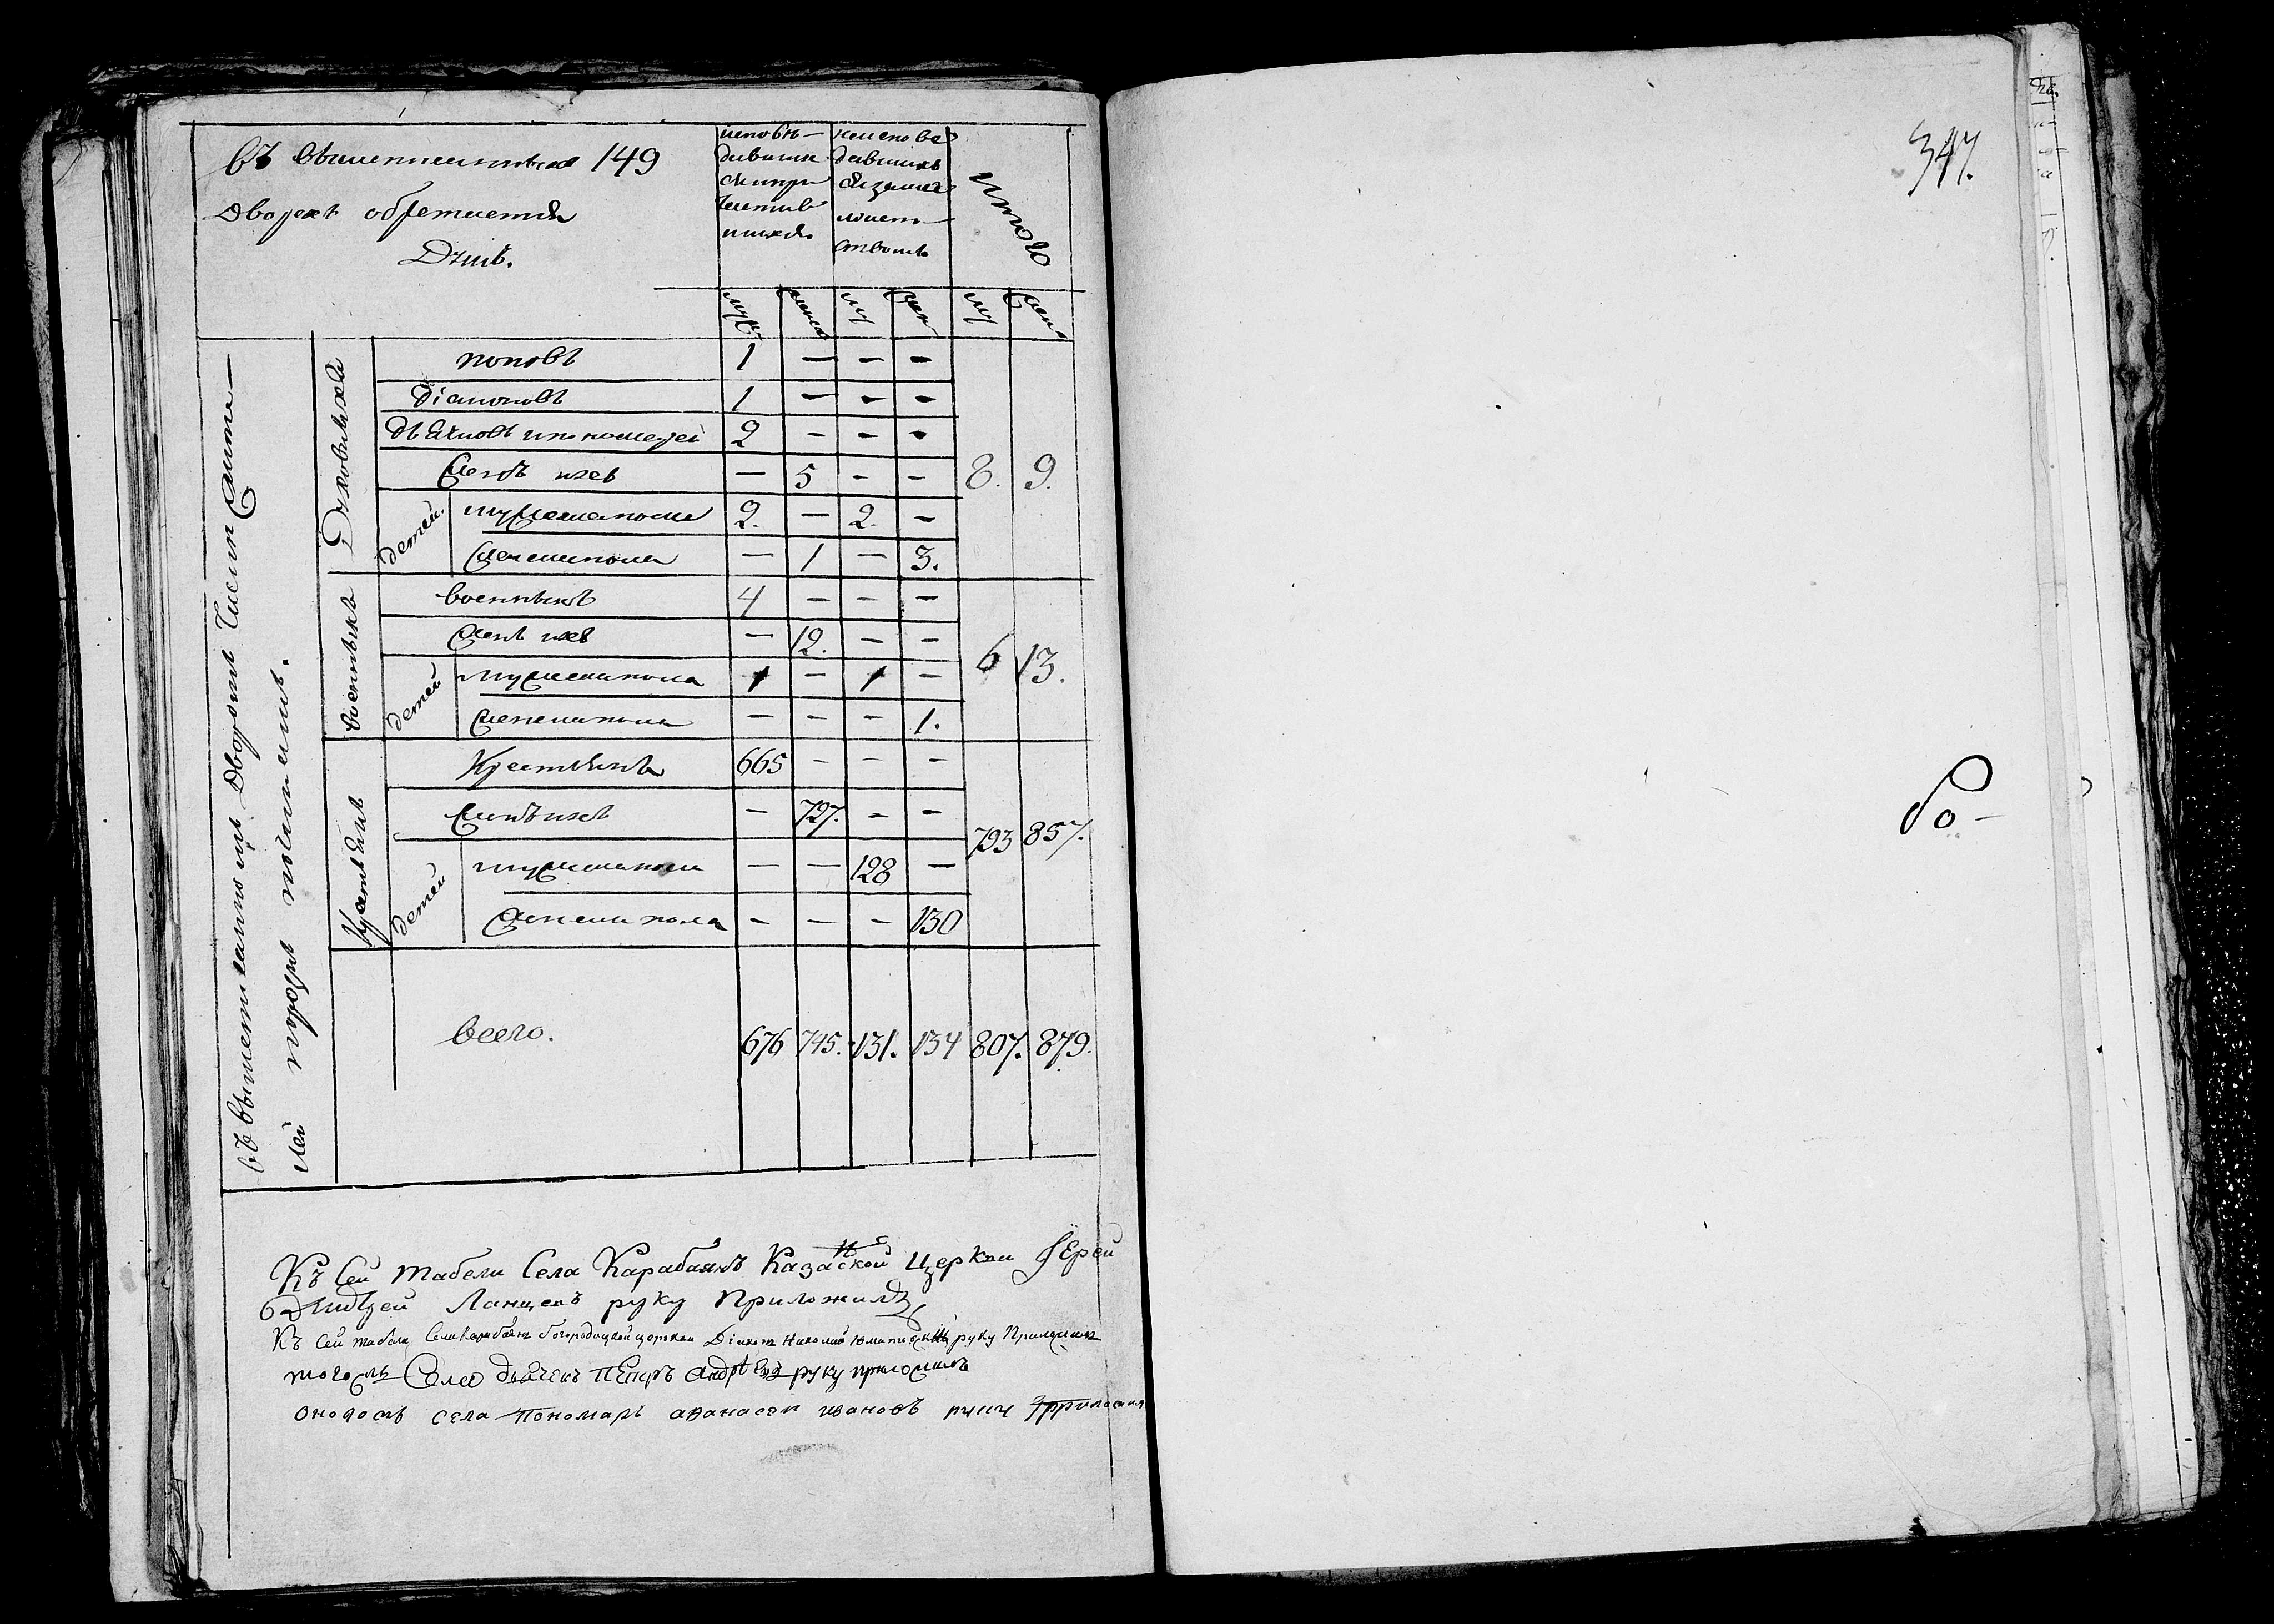 въ вышеписанныхъ 149
дворехъ обретается
Душъ.
исповѣ-
давших
ся и при
частив
шихся
неиспове
давшихъ
ся за мало
лѣт-
ствомъ
итого
муж женск му жен му жен
въ вышеписанныхъ дворахъ
Духовныхъ
поповъ 1 — — —
діаконовъ 1 — — —
дьячковъ и пономарей 2 — — —
женъ ихъ — 5 — — 8. 9.
детей.
мужеска пола 2. — 2. —
женска пола — 1 — 3.
военныхъ
военныхъ 4 — — —
женъ ихъ — 12. — — 6 13.
детей
мужеска пола 1 — 1 —
женска пола — — — 1.
Крестьянъ
Крестьянъ 665 — — —
женъ ихъ — 727. — — 793 857.
детей
мужеска пола — — 128 —
женска пола — — — 130
всего. 676 745. 131. 134 807. 879.
Къ сей табели Села Карабановъ Казанской Церкви Іерей
Андрей руку Приложилъ
Къ сей табели Села богородицкой церкви Діаконъ Николай руку Приложилъ
тогожъ Села дьячекъ Петръ Андрѣевъ руку приложилъ
оногожъ села пономарь афанасеи ивановъ руку приложил
347.